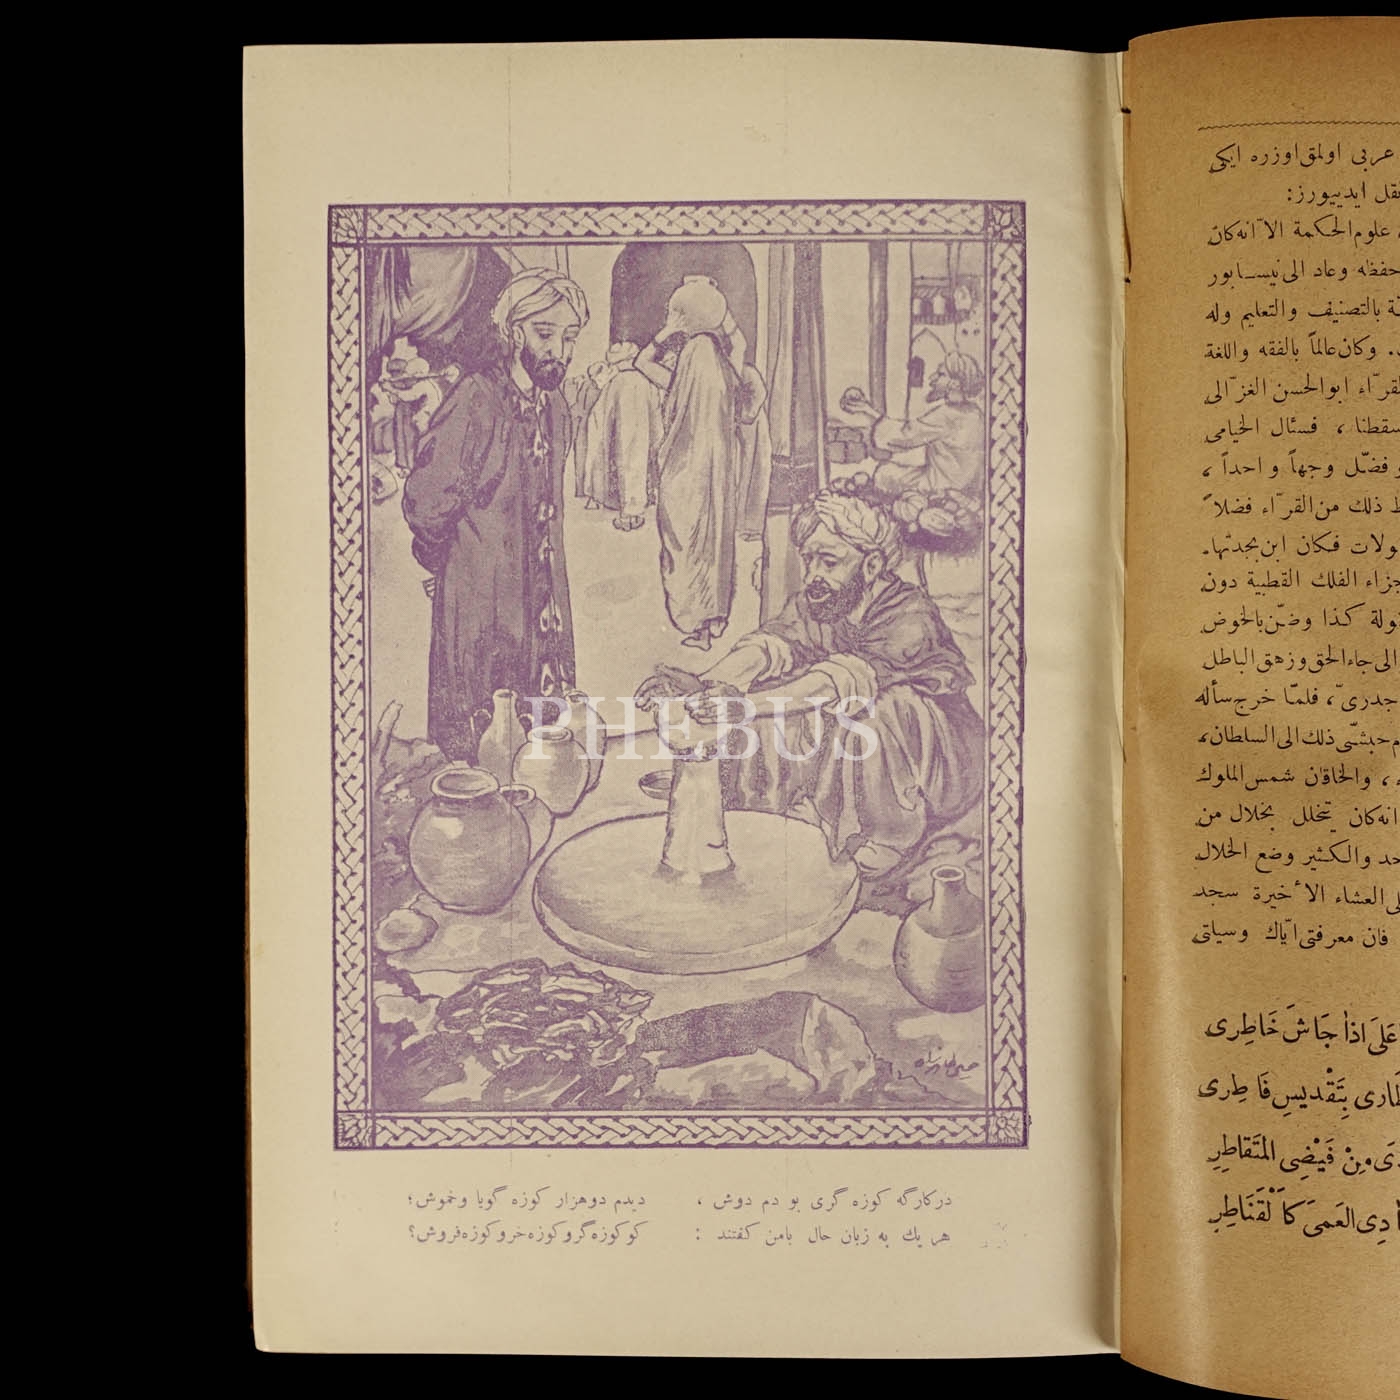 PHEBUS
دركارگه كوزه گرى بو دم دوش ، ديدم دوهزار كوزه گويا وخموش؛
هر يك به زبان حال بامن كفتند : كو كوزه‌گر و كوزه‌خر و كوزه‌فروش؟
عربى اولمق اوزره ايكى
نقل ايدييورز:
علوم الحكمة الا ّانه كان
حفظه وعاد الى نيسابور
بالتصنيف والتعليم وله
وكان عالماً بالفقه واللغة
القرّاء ابوالحسن الغزّالى
سقطنا ، فسئال الخيامى
وفضّل وجهاً واحداً ،
ذلك من القرّاء فضلاً
فكان ابن بجدتها.
اجزاء الفلك القطبية دون
كذا وضنّ بالخوض
الى جاء الحق وزهق الباطل
جدرىّ ، فلمّا خرج سأله
ذلك الى السلطان،
، والخاقان شمس الملوك
انه كان يتخلل بخلال من
والكثير وضع الخلال
العشاء الأخيرة سجد
فان معرفتى ايّاك وسيلتى
عَلىَ اذا جَاشَ خَاطِرى
بِتَقْديسِ فَاطِرى
مِنْ فَيْضِى المتَقاطِرِ
دِى العَمىَ كَالْقَنَاطِرِ